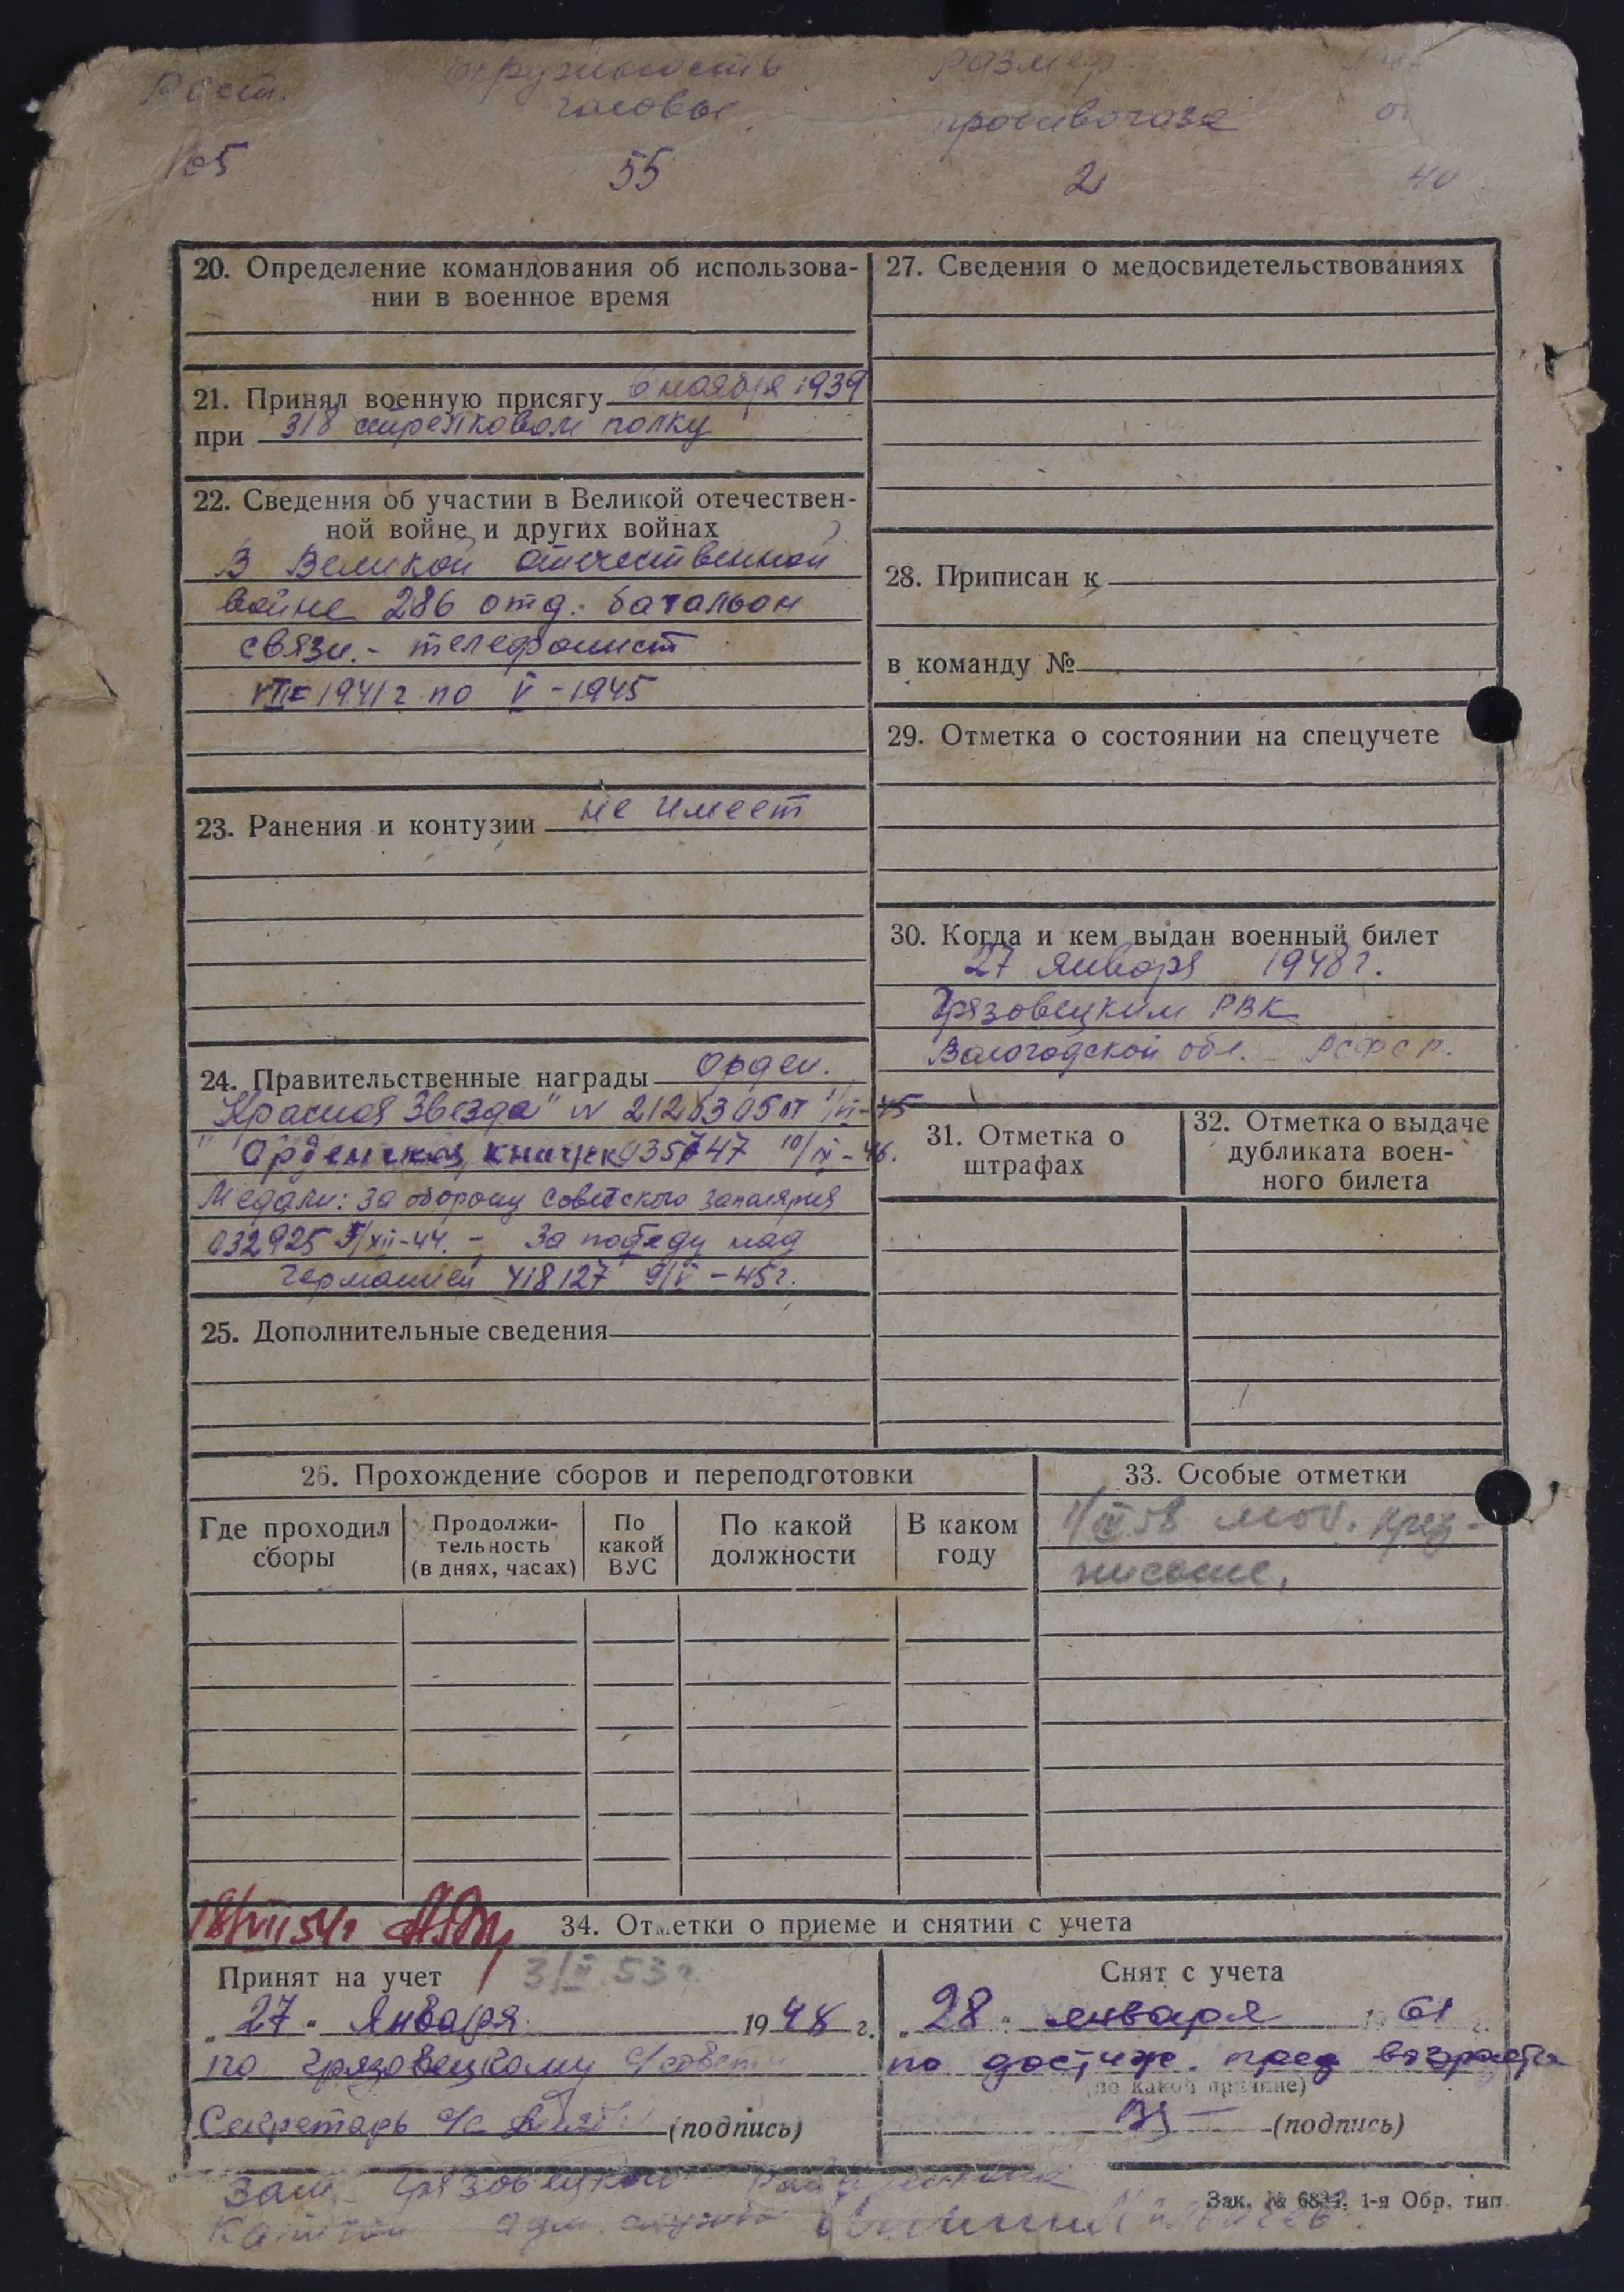 Рост. Окружность Размер.
головы противогаза
165 55 2 40
20. Определение командования об использова-
нии в военное время
21. Принял военную присягу 6 ноября 1939
при 318 стрелковом полку
22. Сведения об участии в Великой отечествен-
ной войне и других войнах
В Великой отечественной
войне 286 отд. батальон
связи. - телефонист
VII - 1941 г по V - 1945
23. Ранения и контузии не имеет
24. Правительственные награды Орден.
"Красная Звезда" N 2126305 от
Орденская книжка 935747 10/IV-46.
Медали: За оборону Советского заполярия
032925 5/XII-44. - За победу над
Германией 418127 9/V - 45 г.
25. Дополнительные сведения
27. Сведения о медосвидетельствованиях
28. Приписан к
в команду №
29. Отметка о состоянии на спецучете
30. Когда и кем выдан военный билет
27 января 1948 г.
Грязовецким РВК
Вологодской обл. РСФСР.
31. Отметка о
штрафах
32. Отметка о выдаче
дубликата воен-
ного билета
26. Прохождение сборов и переподготовки
Где проходил
сборы
Продолжи-
тельность
(в днях, часах)
По
какой
ВУС
По какой
должности
В каком
году
33. Особые отметки
1/IV 58 моб. пред-
писание.
18/VII 54 г
34. Отметки о приеме и снятии с учета
Принят на учет 3/II 53 г.
„27“ Января 1948 г.
по Грязовецкому с/совету
Секретарь с/с (подпись)
Снят с учета
„28“ января 1961 г.
по достиж. пред возраста
(по какой причине)
(подпись)
Зам. Грязовецкого
Капитан адм. службы
Зак. № 1-я Обр. тип.